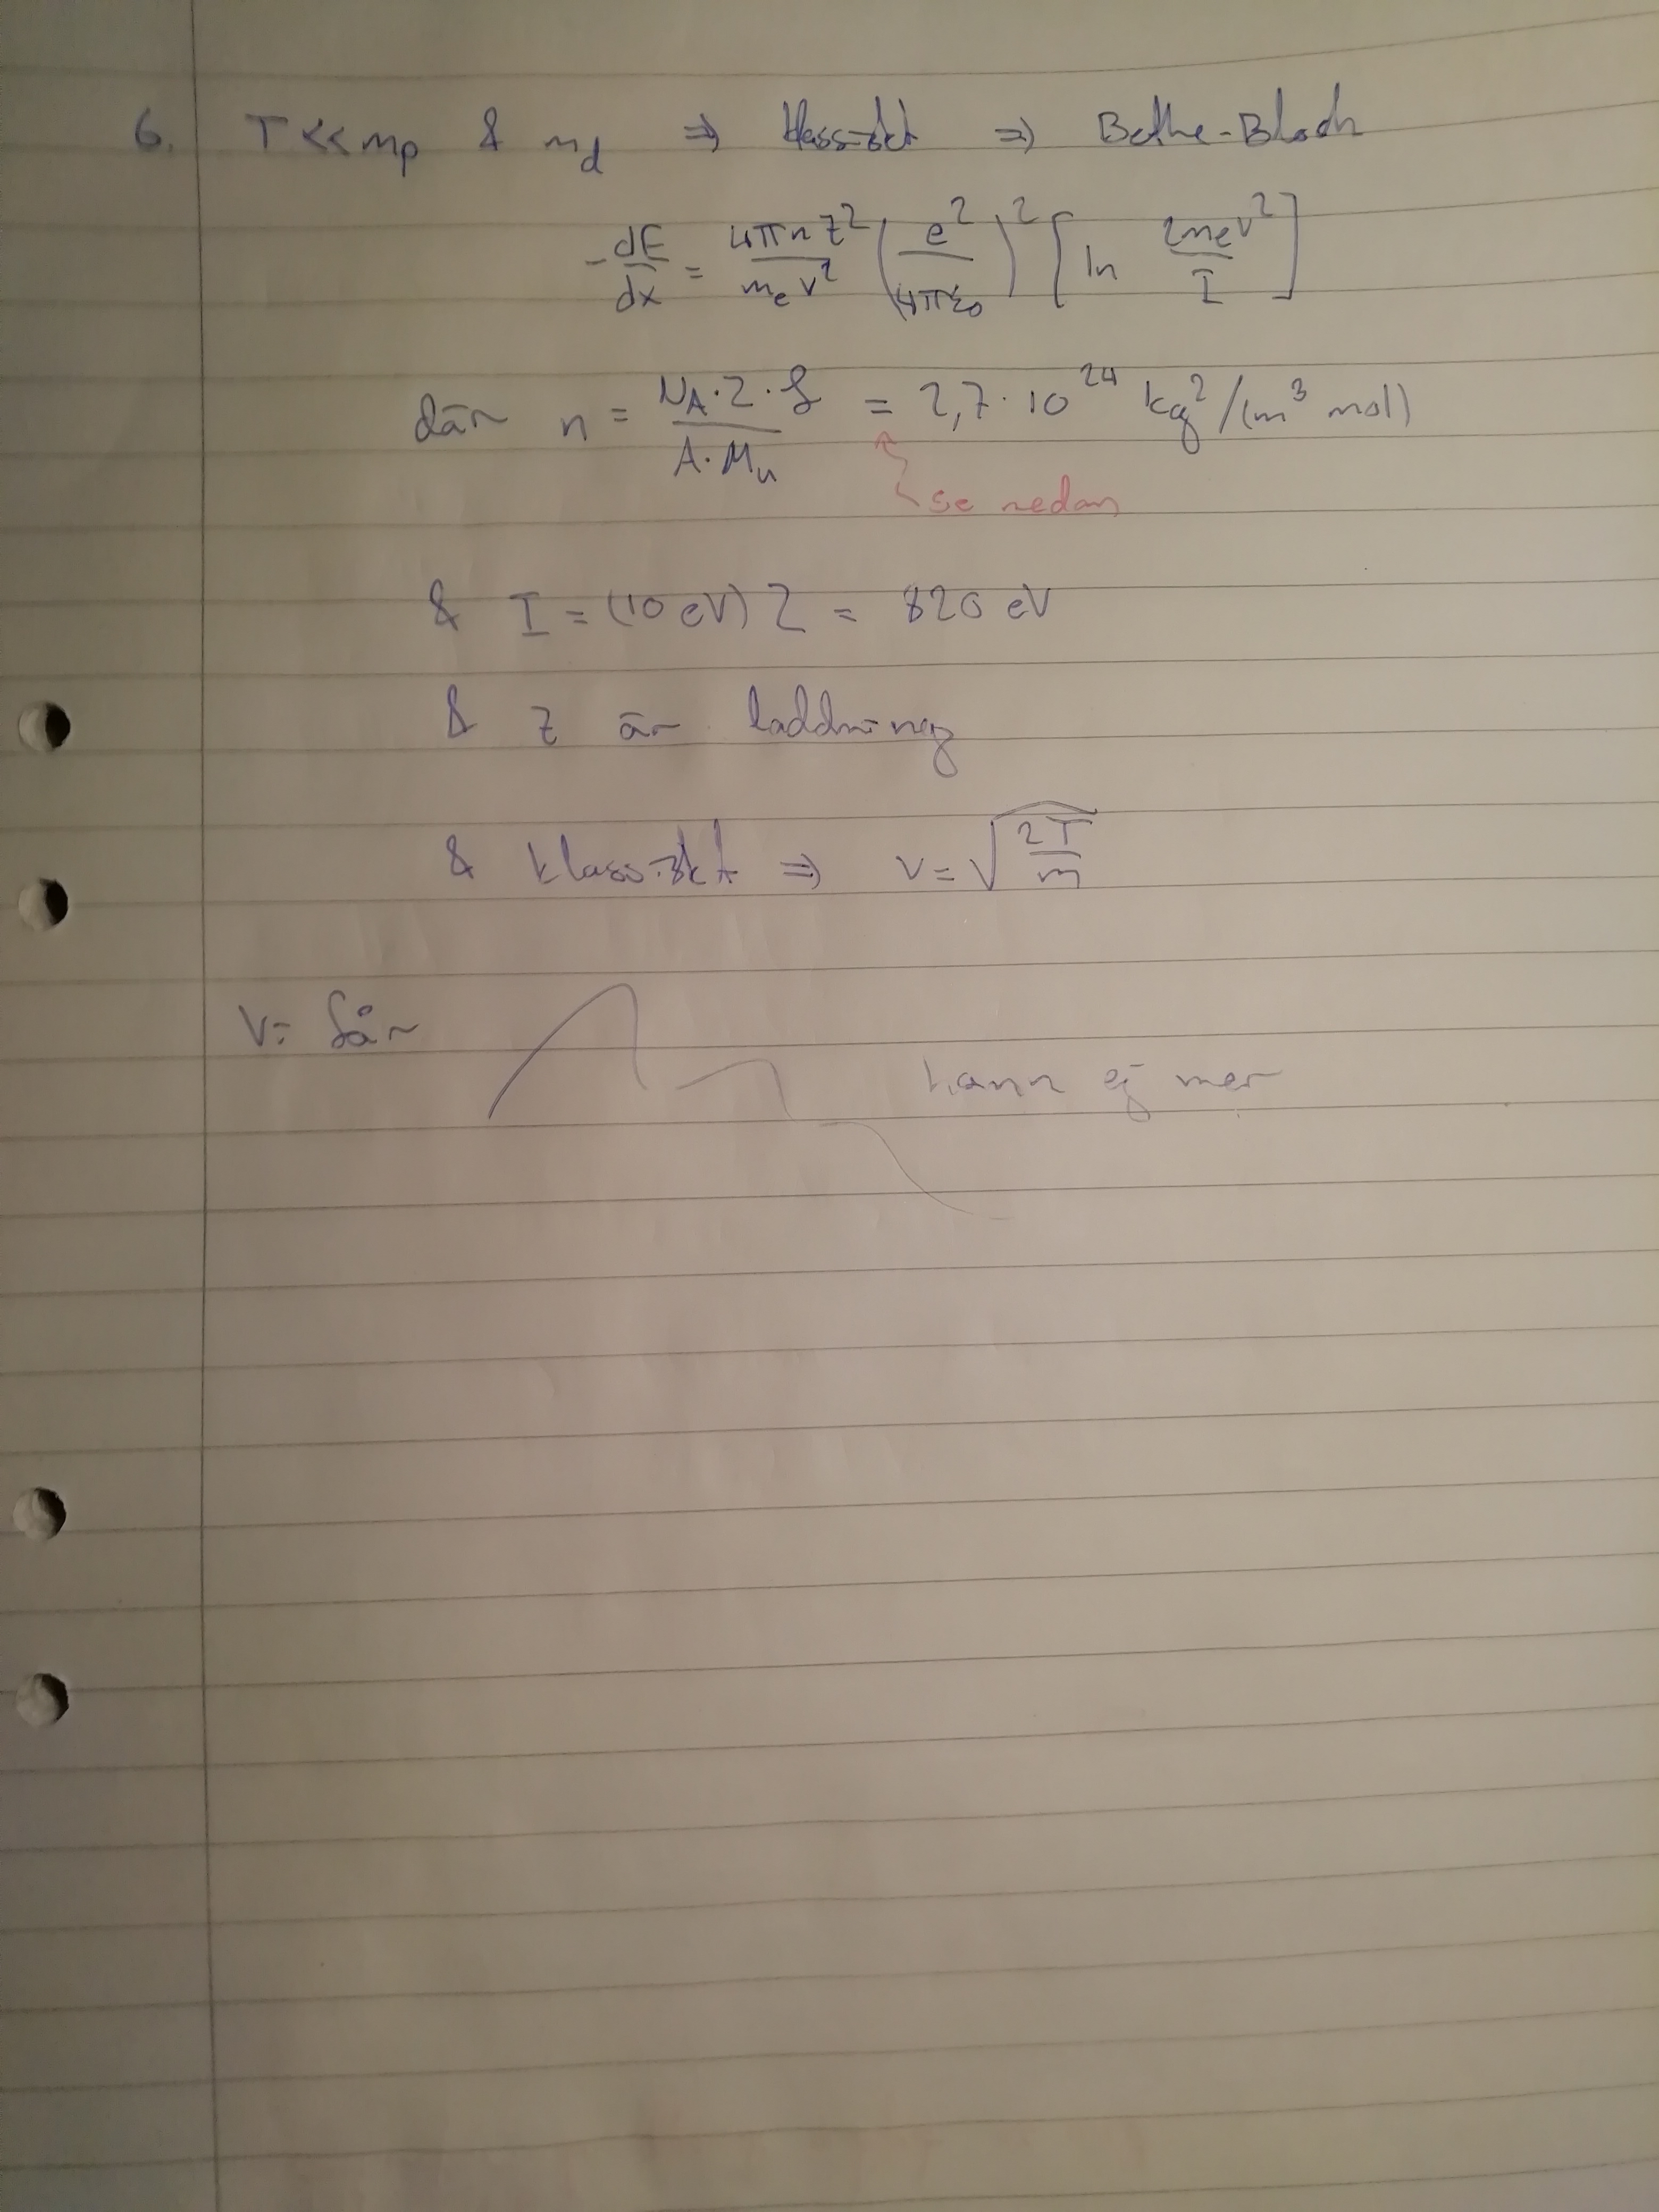 6. T << mp & md ⇒ klassiskt ⇒ Bethe-Bloch
-dE/dx = 4πnz²/(mₑv²) (e²/(4πε₀))² [ln 2mₑv²/I]
där n = NA·Z·ρ/(A·Mu) = 2,7·10²⁴ kg²/(m³ mol)
se nedan
& I = (10 eV) Z = 820 eV
& z är laddning
& klassiskt ⇒ v = √(2T/m)
Vi får
hann ej mer